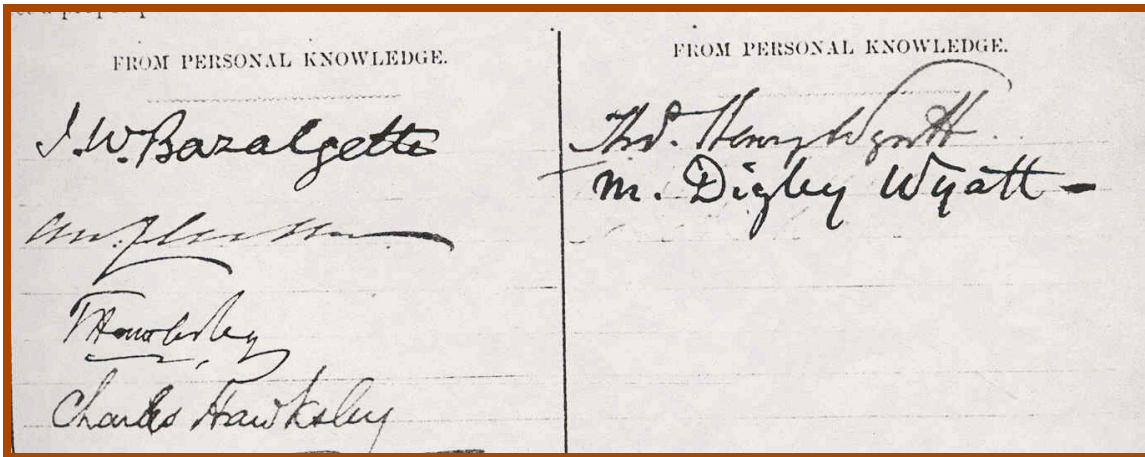 FROM PERSONAL KNOWLEDGE.
J. W. Bazalgette
T Hawksley
Charles Hawksley
FROM PERSONAL KNOWLEDGE.
Thos. Henry Wyatt
M. Digby Wyatt